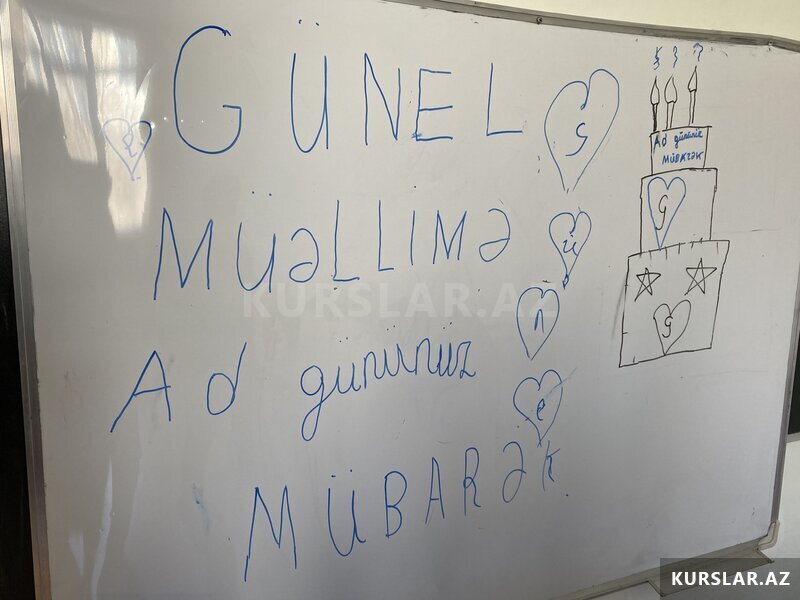 GÜNEL
MÜƏLLİMƏ
Ad gününüz
MÜBARƏK
G
ü
n
e
l
Ad gününüz
MÜBARƏK
G
G
KURSLAR.AZ
KURSLAR.AZ